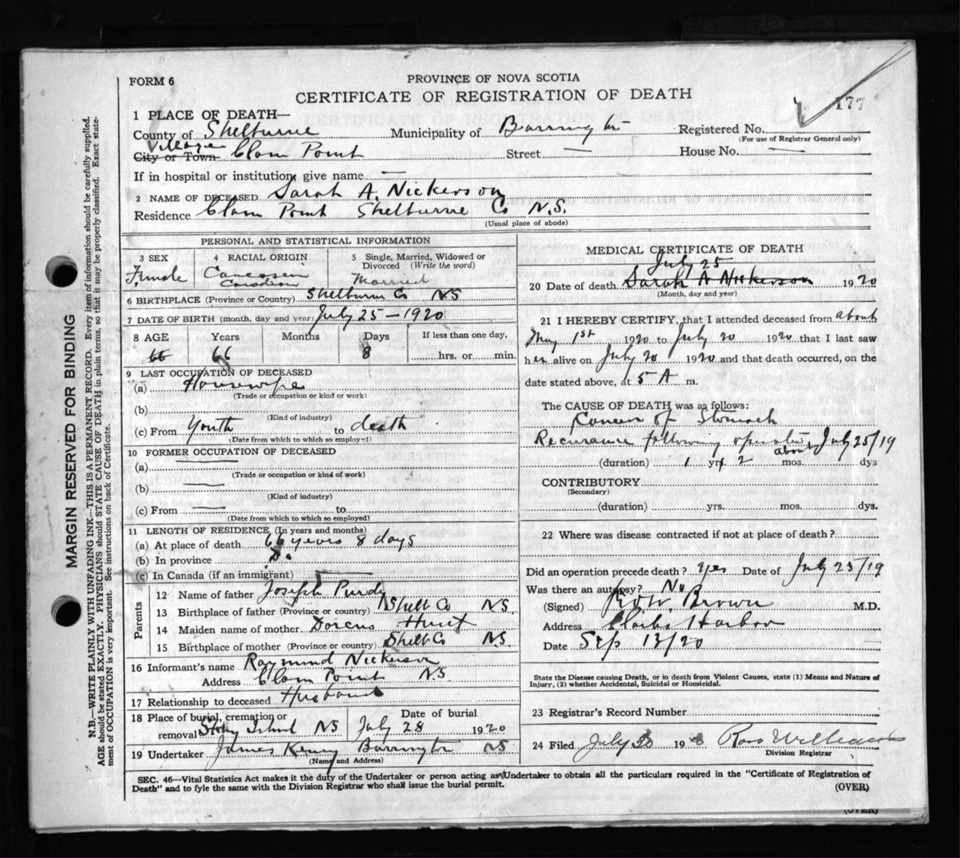 FORM 6
PROVINCE OF NOVA SCOTIA
CERTIFICATE OF REGISTRATION OF DEATH
177
1 PLACE OF DEATH—
County of Shelburne Municipality of Barrington Registered No.
(For use of Registrar General only)
Village
City or Town Clam Point Street — House No. —
If in hospital or institution, give name —
2 NAME OF DECEASED Sarah A. Nickerson
Residence Clam Point Shelburne Co N.S.
(Usual place of abode)
PERSONAL AND STATISTICAL INFORMATION
3 SEX 4 RACIAL ORIGIN 5 Single, Married, Widowed or Divorced (Write the word)
Female Canadian Married
6 BIRTHPLACE (Province or Country) Shelburne Co NS
7 DATE OF BIRTH (month, day and year) July 25 - 1920
8 AGE Years Months Days If less than one day,
66 66 8 hrs. or min.
9 LAST OCCUPATION OF DECEASED
(a) Housewife
(Trade or occupation or kind or work)
(b)
(Kind of industry)
(c) From Youth to death
(Date from which to which so employed)
10 FORMER OCCUPATION OF DECEASED
(a) —
(Trade or occupation or kind of work)
(b) —
(Kind of industry)
(c) From — to
(Date from which to which so employed)
11 LENGTH OF RESIDENCE (In years and months)
(a) At place of death 66 years 8 days
(b) In province Do
(c) In Canada (if an immigrant) —
Parents
12 Name of father Joseph Purdy
13 Birthplace of father (Province or country) Shelb Co NS.
14 Maiden name of mother Dorcus Hunt
15 Birthplace of mother (Province or country) Shelb Co NS.
16 Informant's name Raymond Nickerson
Address Clam Point NS
17 Relationship to deceased Husband
18 Place of burial, cremation or removal Stony Island NS Date of burial July 28 1920
19 Undertaker James Kenny Barrington NS
(Name and Address)
MEDICAL CERTIFICATE OF DEATH
July 25
20 Date of death Sarah A Nickerson 1920
(Month, day and year)
21 I HEREBY CERTIFY, that I attended deceased from about
May 1st 1920 to July 20 1920 that I last saw
her alive on July 20 1920 and that death occurred, on the
date stated above, at 5 A m.
The CAUSE OF DEATH was as follows:
Cancer of Stomach
Recurrance following operation about July 25/19
(duration) 1 yrs 2 mos. dys
CONTRIBUTORY
(Secondary)
(duration) yrs. mos. dys.
22 Where was disease contracted if not at place of death?
Did an operation precede death? yes Date of July 25/19
Was there an autopsy? No
(Signed) Brown M.D.
Address Clarks Harbor
Date Sep 13/20
State the Disease causing Death, or in death from Violent Causes, state (1) Means and Nature of Injury, (2) whether Accidental, Suicidal or Homicidal.
23 Registrar's Record Number
24 Filed July 30 19 Ross
Division Registrar
SEC. 46—Vital Statistics Act makes it the duty of the Undertaker or person acting as Undertaker to obtain all the particulars required in the "Certificate of Registration of
Death" and to fyle the same with the Division Registrar who shall issue the burial permit. (OVER)
(OVER)
MARGIN RESERVED FOR BINDING
N.B.—WRITE PLAINLY WITH UNFADING INK—THIS IS A PERMANENT RECORD. Every item of information should be carefully supplied.
AGE should be stated EXACTLY. PHYSICIANS should STATE CAUSE OF DEATH in plain terms, so that it may be properly classified. Exact statement of OCCUPATION is very important. See instructions on back of Certificate.